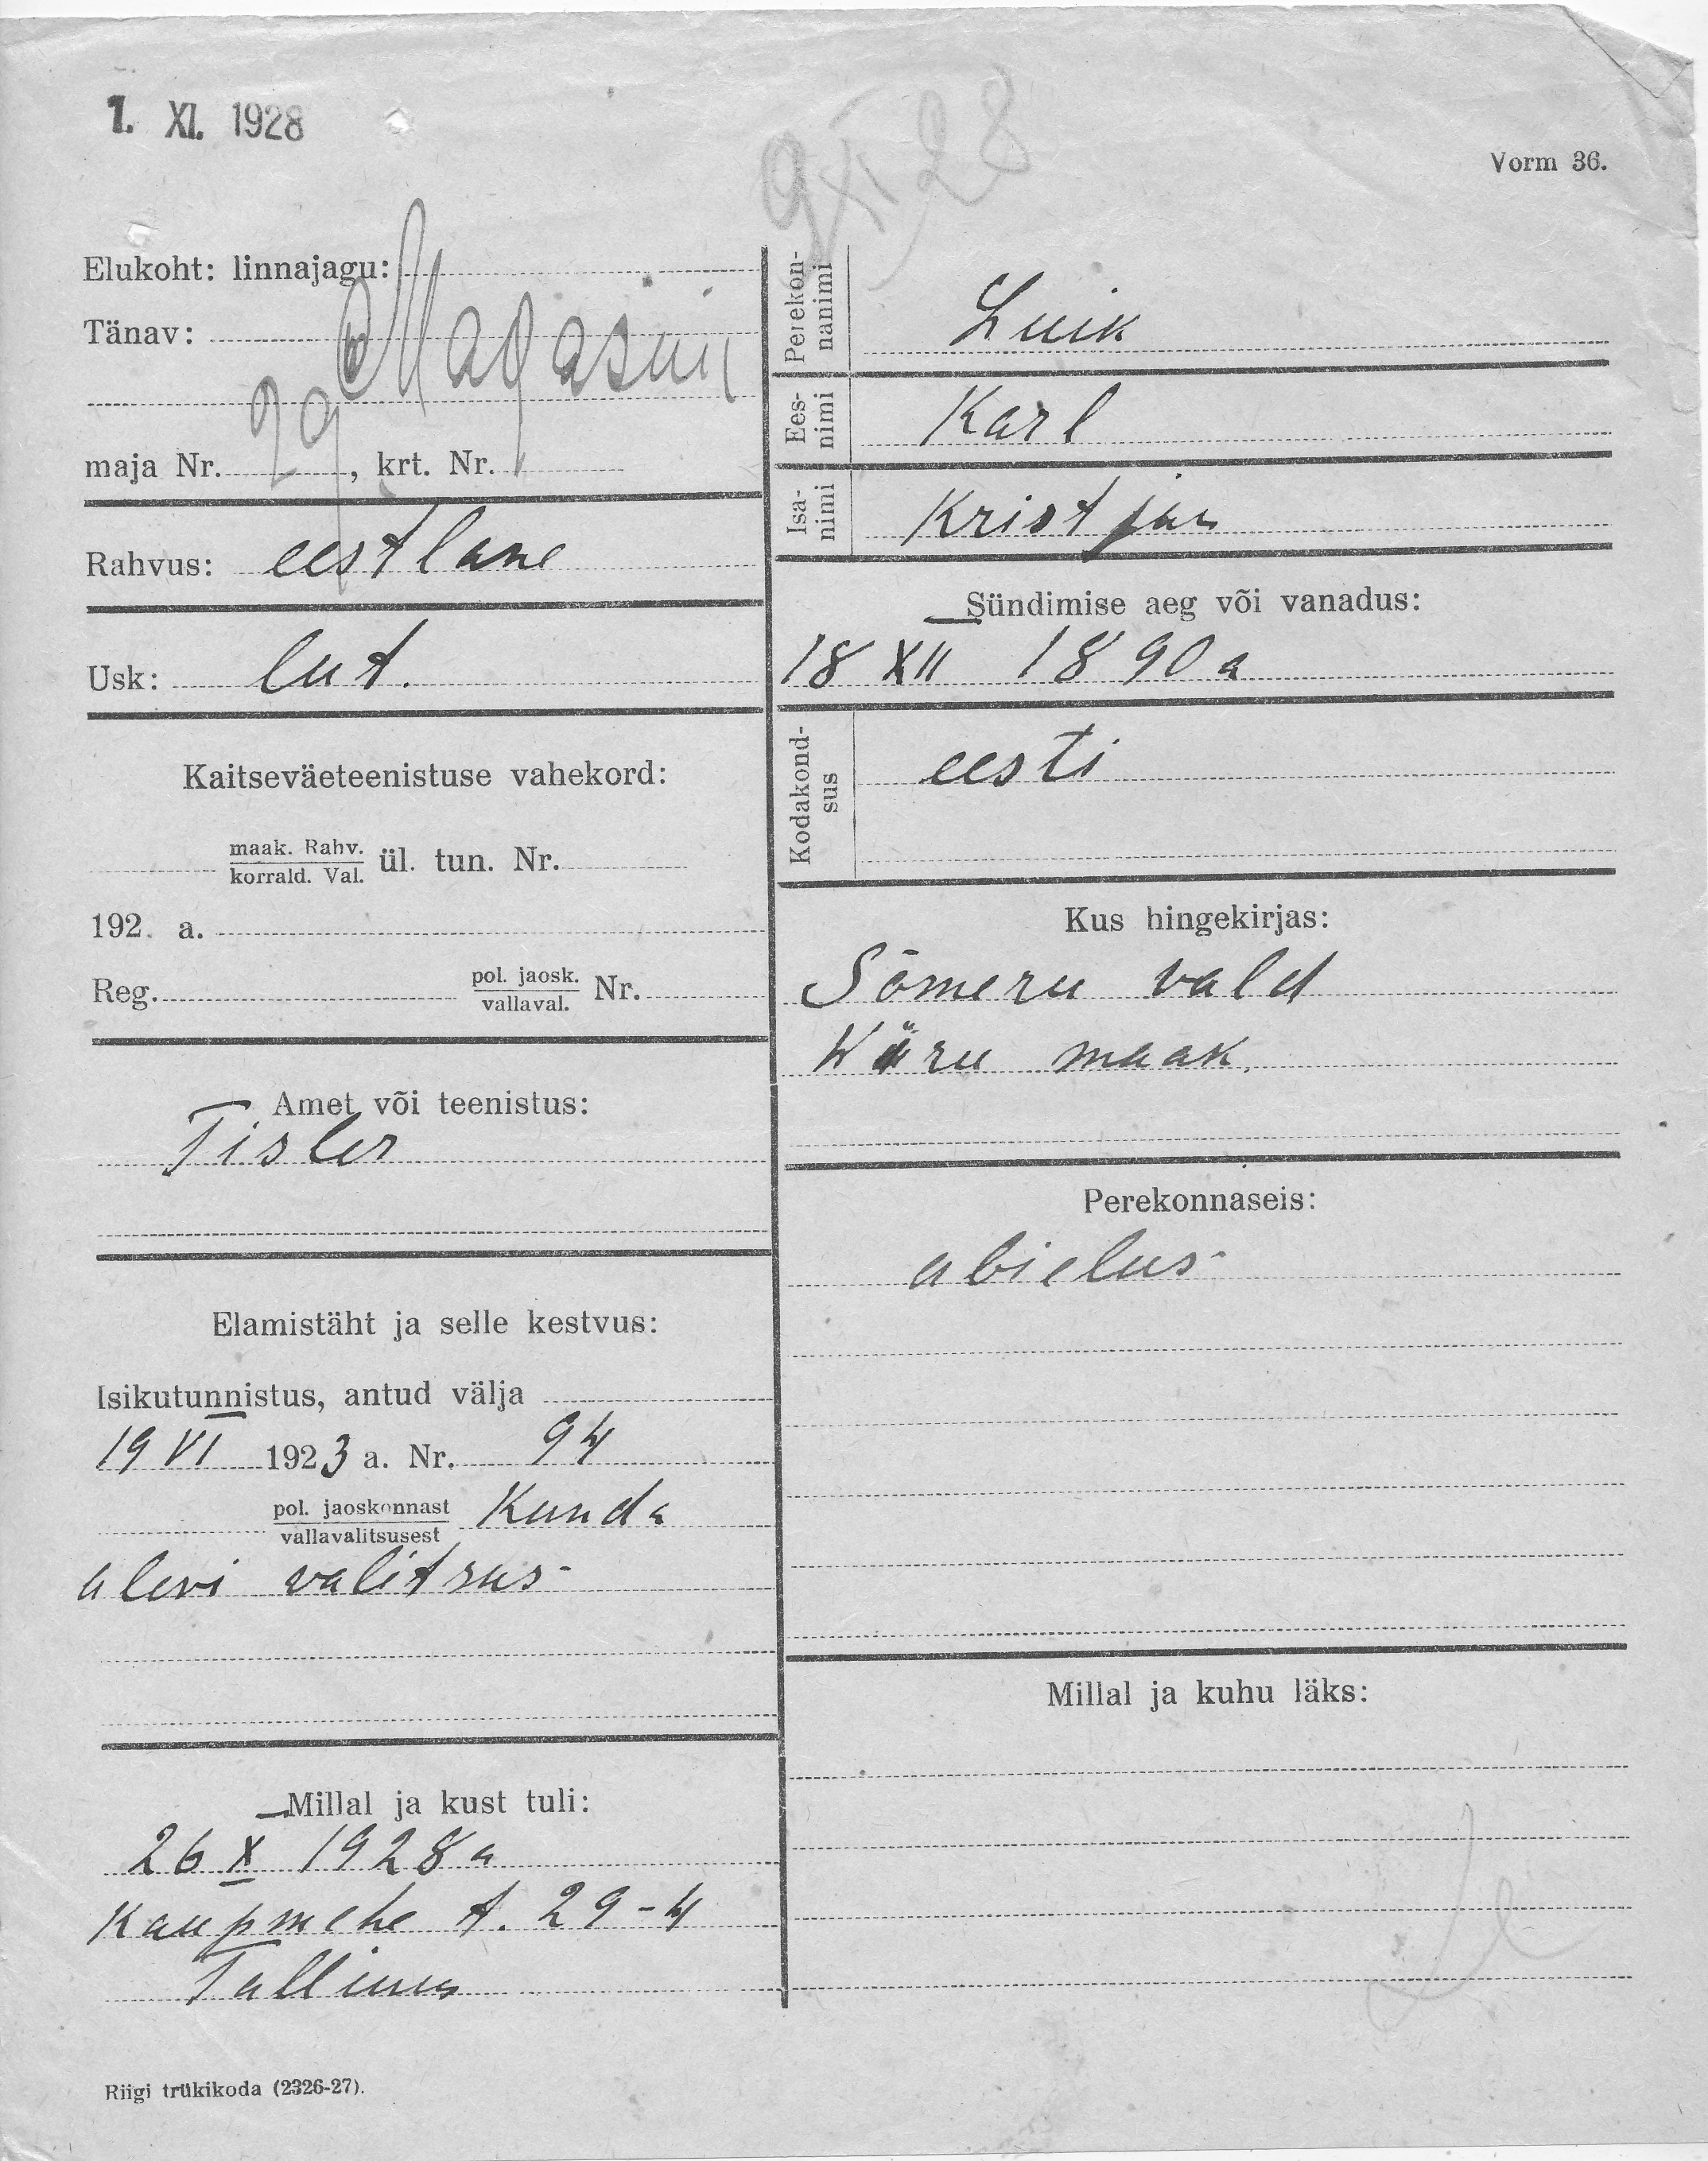 1. XI. 1928
9 XI 28
Vorm 36.
Elukoht: linnajagu:
Tänav: Magasini
maja Nr. 29, krt. Nr.
Rahvus: eestlane
Usk: lut.
Kaitseväeteenistuse vahekord:
maak. Rahv.
korrald. Val. ül. tun. Nr.
192 a.
Reg. pol. jaosk.
vallaval. Nr.
Amet või teenistus:
Tisler
Elamistäht ja selle kestvus:
Isikutunnistus, antud välja
19 VI 1923 a. Nr. 94
pol. jaoskonnast
vallavalitsusest Kunda
alevi valitsus
Millal ja kust tuli:
26 X 1928 a
Kaupmehe t. 29-4
Tallinn
Riigi trükikoda (2326-27).
Perekon-
nanimi Luik
Ees-
nimi Karl
Isa-
nimi Kristjan
Sündimise aeg või vanadus:
18 XII 1890 a
Kodakond-
sus eesti
Kus hingekirjas:
Sõmeru vald
maak.
Perekonnaseis:
abielus
Millal ja kuhu läks: